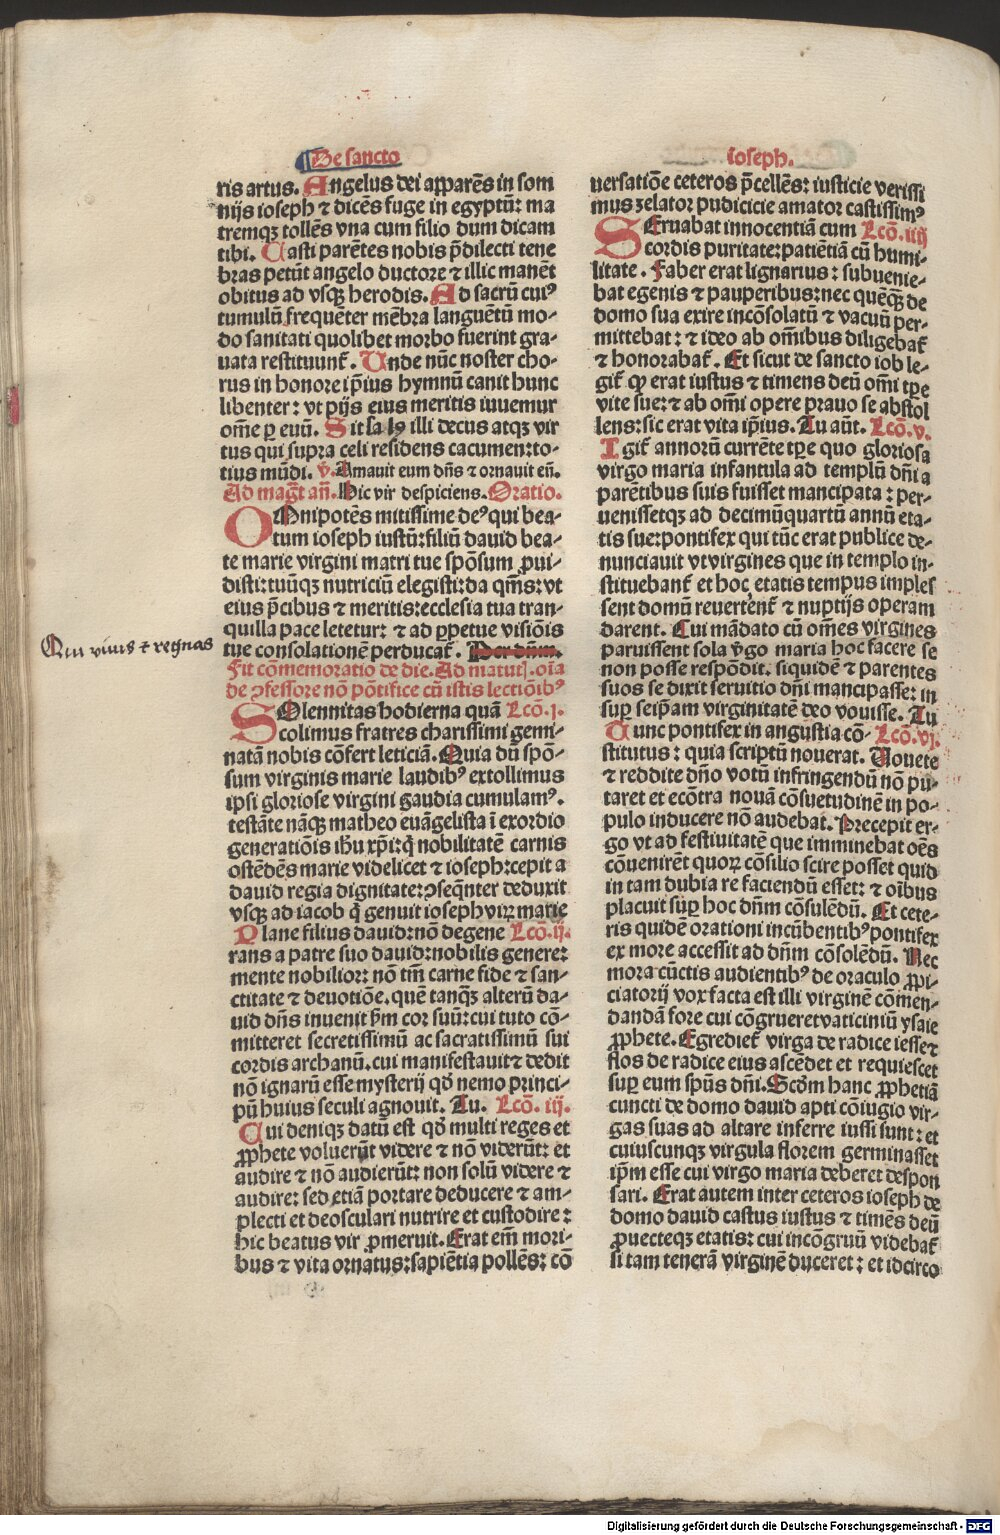 De sancto
ris artus. Angelus dei apparēs in som
nijs ioseph ⁊ dicēs fuge in egyptū: ma
tremqꝫ tollēs vna cum filio dum dicam
tibi. Casti parētes nobis p̄dilecti tene
bras petūt angelo ductore ⁊ illic manēt
obitus ad vsqꝫ herodis. Ad sacrū cuiꝰ
tumulū frequēter mēbra languētū mo⸗
do sanitati quolibet morbo fuerint gra⸗
uata restituunt̄. Unde nūc noster cho⸗
rus in honore ip̄ius hymnū canit hunc
libenter: vt pijs eius meritis iuuemur
om̄e ꝑ euū. Sit illi decus atqꝫ vir
tus qui supra celi residens cacumen: to⸗
tius mūdi. v̄. Amauit eum dn̄s ⁊ ornauit eū.
Ad maḡt an̄. Hic vir despiciens. Oratio.
OMnipotēs mitissime deꝰ qui bea⸗
tum ioseph iustū: filiū dauid bea⸗
te marie virgini matri tue spōsum ꝓui⸗
disti: tuūqꝫ nutriciū elegisti: da qm̄s: vt
eius p̄cibus ⁊ meritis: ecclesia tua tran⸗
quilla pace letetur: ⁊ ad ꝑpetue visiōis
tue consolationē perducat̄. Per dn̄m.
Qui viuis ⁊ regnas
Fit cōmemoratio de die. Ad matuť. oīa
de ꝯfessore nō pōtifice cū istis lectiōibꝰ
SOlennitas hodierna quā Lcō. j.
colimus fratres charissimi gemi⸗
natā nobis cōfert leticiā. Quia dū spō⸗
sum virginis marie laudibꝰ extollimus
ipsi gloriose virgini gaudia cumulamꝰ.
testāte nāqꝫ matheo euāgelista ī exordio
generatiōis ihu xp̄i: q̄ nobilitatē carnis
ostēdēs marie videlicet ⁊ ioseph: cepit a
dauid regia dignitate: ꝯseqn̄ter deduxit
vsqꝫ ad iacob q̄ genuit ioseph virꝝ marie
Plane filius dauid: nō degene Lcō. ij.
rans a patre suo dauid: nobilis genere:
mente nobilior: nō tm̄ carne fide ⁊ san⸗
ctitate ⁊ deuotiōe. quē tanqꝫ alterū da⸗
uid dn̄s inuenit ẜm cor suū: cui tuto cō⸗
mitteret secretissimū ac sacratissimū sui
cordis archanū. cui manifestauit ⁊ dedit
nō ignarū esse mysterij qd̄ nemo princi⸗
pū huius seculi agnouit. Tu. Lcō. iij.
Cui deniqꝫ datū est qd̄ multi reges et
ꝓphete voluerūt videre ⁊ nō viderūt: et
audire ⁊ nō audierūt: non solū videre ⁊
audire: sed etiā portare deducere ⁊ am⸗
plecti et deosculari nutrire et custodire:
hic beatus vir ꝓmeruit. Erat em̄ mori⸗
bus ⁊ vita ornatus: sapiētia pollēs: cō
ioseph.
uersatiōe ceteros p̄cellēs: iusticie verissi
mus zelator pudicicie amator castissimꝰ
SEruabat innocentiā cum Lcō. iiij
cordis puritate: patiētiā cū humi⸗
litate. Faber erat lignarius: subuenie⸗
bat egenis ⁊ pauperibus: nec quēqꝫ de
domo sua exire incōsolatū ⁊ vacuū per⸗
mittebat: ⁊ ideo ab om̄ibus diligebat̄
⁊ honorabat̄. Et sicut de sancto iob le⸗
git̄ ꝙ erat iustus ⁊ timens deū om̄i tꝑe
vite sue: ⁊ ab om̄i opere prauo se abstol
lens: sic erat vita ip̄ius. Tu aūt. Lcō. v.
Igit̄ annorū currēte tꝑe quo gloriosa
virgo maria infantula ad templū dn̄i a
parētibus suis fuisset mancipata: per⸗
uenissetqꝫ ad decimūquartū annū eta⸗
tis sue: pontifex qui tūc erat publice de⸗
nunciauit vt virgines que in templo in⸗
stituebant̄ et hoc etatis tempus imples
sent domū reuertent̄ ⁊ nuptijs operam
darent. Cui mādato cū om̄es virgines
paruissent sola v̄go maria hoc facere se
non posse respōdit. siquidē ⁊ parentes
suos se dixit seruitio dn̄i mancipasse: in
suꝑ seip̄am virginitatē deo vouisse. Tu
Tunc pontifex in angustia cō⸗ Lcō. vj.
stitutus: quia scriptū nouerat. Vouete
⁊ reddite dn̄o votū infringendū nō pu⸗
taret et ecōtra nouā cōsuetudinē in po⸗
pulo inducere nō audebat. Precepit er⸗
go vt ad festiuitatē que imminebat oēs
cōuenirēt quoꝝ cōsilio scire posset quid
in tam dubia re faciendū esset: ⁊ oībus
placuit suꝑ hoc dn̄m cōsulēdū. Et cete⸗
ris quidē orationi incūbentibꝰ pontifex
ex more accessit ad dn̄m cōsolēdū. Nec
mora cūctis audientibꝰ de oraculo ꝓpi⸗
ciatorij vox facta est illi virginē cōmen⸗
dandā fore cui cōgrueret vaticiniū ysaie
ꝓphete. Egrediet̄ virga de radice iesse ⁊
flos de radice eius ascēdet et requiescet
suꝑ eum spūs dn̄i. Scd̄m hanc ꝓphetiā
cuncti de domo dauid apti cōiugio vir⸗
gas suas ad altare inferre iussi sunt: et
cuiuscunqꝫ virgula florem germinasset
ip̄m esse cui virgo maria deberet despon
sari. Erat autem inter ceteros ioseph de
domo dauid castus iustus ⁊ timēs deū
ꝓuecteqꝫ etatis: cui incōgruū videbat̄
si tam tenerā virginē duceret: et idcirco
Digitalisierung gefördert durch die Deutsche Forschungsgemeinschaft - DFG